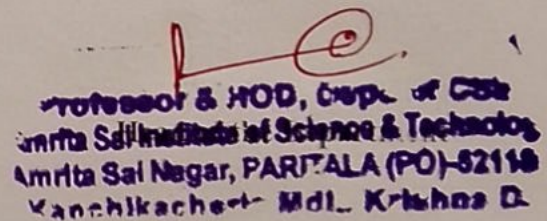 Professor & HOD, Dept. of CSE
Amrita Sai Institute of Science & Technology
Amrita Sai Nagar, PARITALA (PO)-52118
Kanchikacherla Mdl., Krishna D.